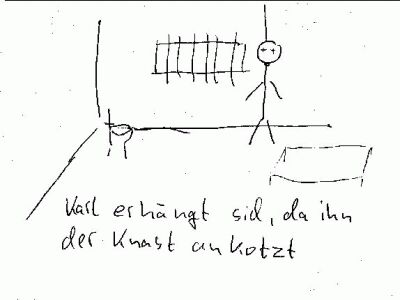 Karl erhängt sich, da ihn
der Knast ankotzt